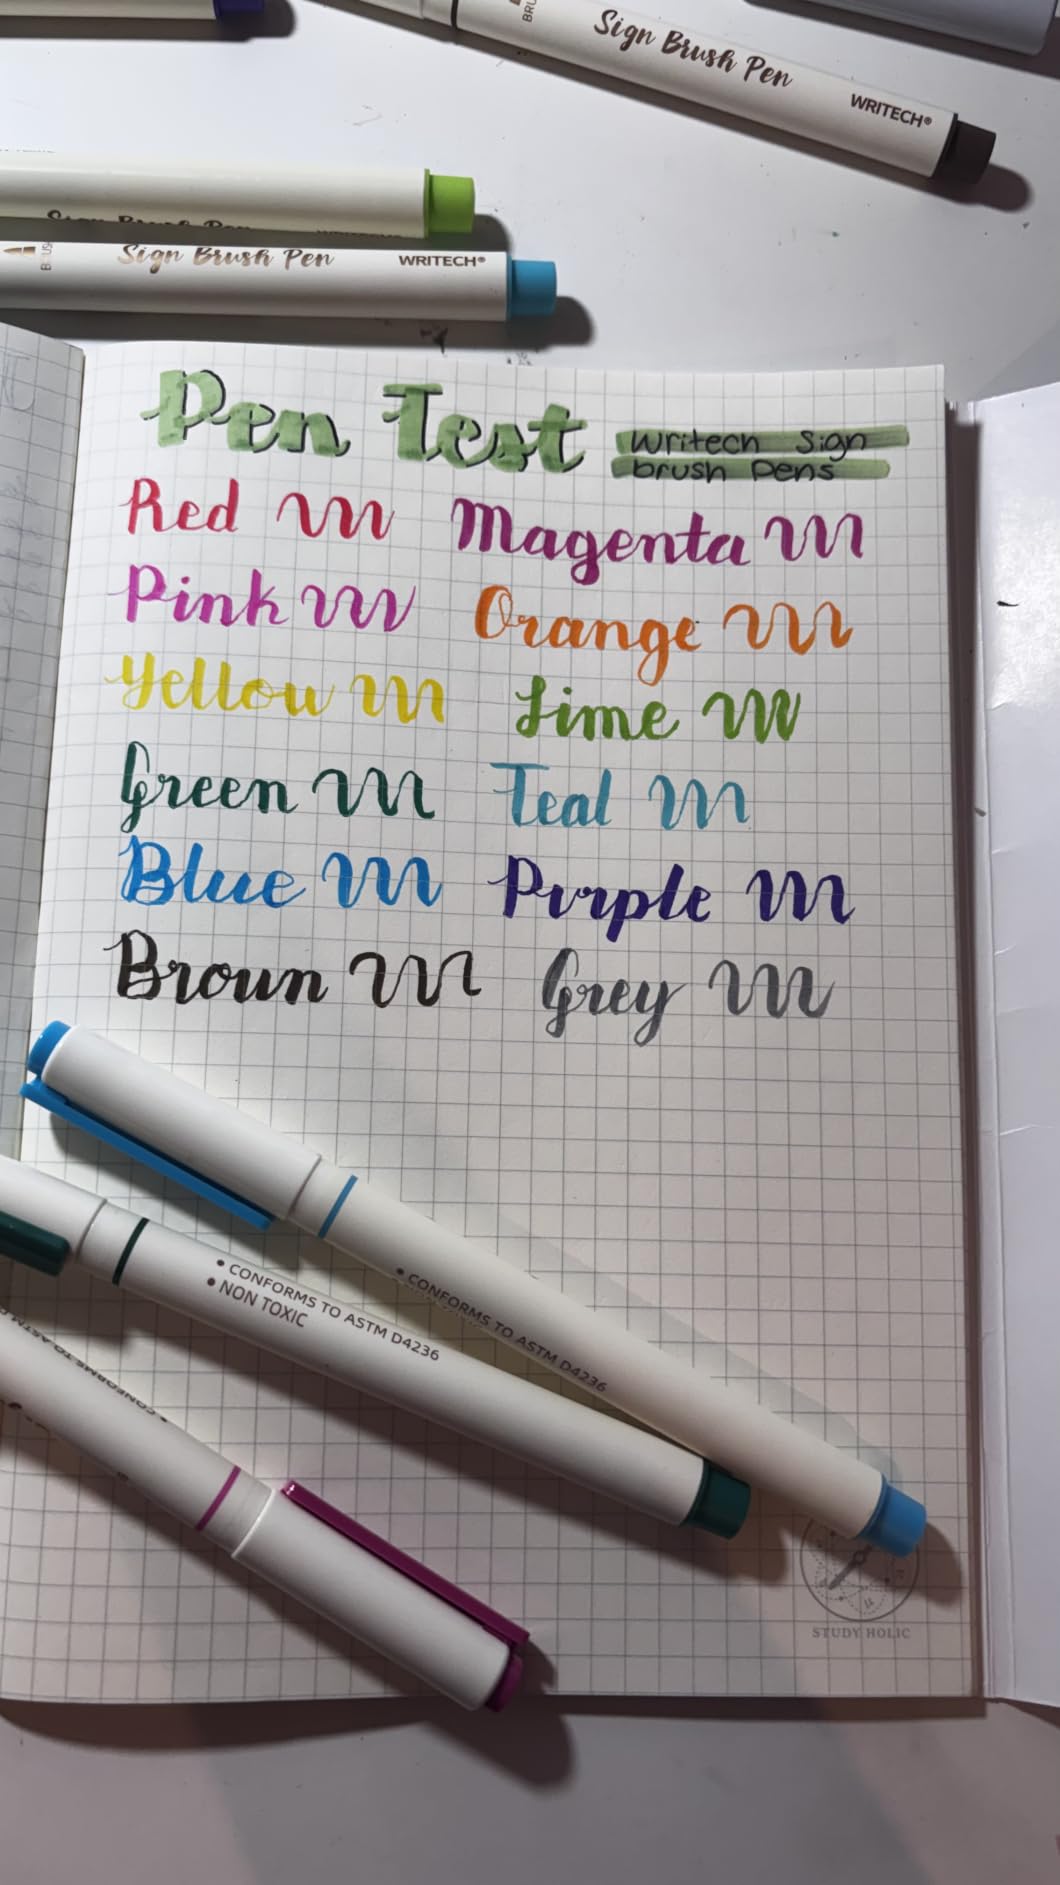 Sign Brush Pen WRITECH®
BRU
Sign Brush Pen
BRUS Sign Brush Pen WRITECH®
Pen Test Writech Sign
brush Pens
Red Magenta
Pink Orange
Yellow Lime
Green Teal
Blue Purple
Broun Grey
• CONFORMS TO ASTM D4236
• NON TOXIC
• CONFORMS TO ASTM D4236
• CONFORMS TO ASTM
STUDY HOLIC